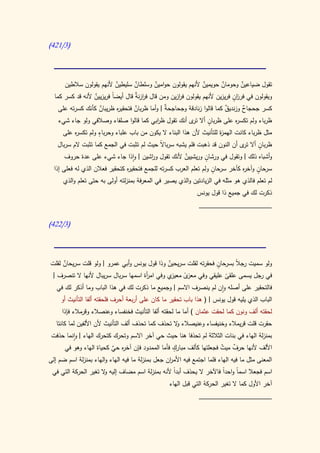 (421/3)
تقول ضباعينُ وحومانُ حويمينُ لأنهم يقولون حوامينُ وسلطانُ سليطينُ لأنهم يقولون سلاطين
ويقولون في فرزان فريزين لأنهم يقولون فرازين ومن قال فرازنةُ قال أيضاً فريزيين لأنه قد كسر كما
كسر جحجاحٌ وزنديقٌ كما قالوا زنادقة وجحاجحة ( وأما ظربانُ فتحقيره ظريبانُ كأنك كسرته على
ظرباء ولم تكسره على ظربانٍ ألا ترى أنك تقول ظرابي كما قالوا صلفاء وصلافي ولو جاء شيء
مثل ظرباء كانت الهمزة للتأنيث لأن هذا البناء لا يكون من باب علباء وحرباءٍ ولم تكسره على
ظربانٍ ألا ترى أن النون قد ذهبت فلم يشبه سربالاً حيث لم تثبت في الجمع كما تثبت لام سربال
وأشباه ذلك ( وتقول في ورشانٍ وريشينٌ لأنك تقول وراشين ( وإذا جاء شيء على عدة حروف
سرحانٍ وآخره كآخر سرحانٍ ولم تعلم العرب كسرته للجمع فتحقيره كتحقير فعلان الذي له فعلى إذا
لم تعلم فالذي هو مثله في الزيادتين والذي يصير في المعرفة بمنزلته أولى به حتى تعلم والذي
ذكرت لك في جميع ذا قول يونس
(422/3)
ولو سميت رجلاً بسرحانٍ فحقرته لقلت سريحينٌ وذا قول يونس وأبي عمرو ( ولو قلت سريحانُ لقلت
في رجل يسمى علقىً عليقي وفي معزىً معيزى وفي امرأة اسمها سربال سربيال لأنها لا تنصرف (
فالتحقير على أصله وإن لم ينصرف الاسم ( وجميع ما ذكرت لك في هذا الباب وما أذكر لك في
الباب الذي يليه قول يونس ( ( هذا باب تحقير ما كان على أربعة أحرف فلحقته ألفا التأنيث أو
لحقته ألف ونون كما لحقت عثمان ) أما ما لحقته ألفا التأنيث فخنفساء وعنصلاء وقرملاء فإذا
حقرت قلت قريملاء وخنيفساء وعنيصلاء ولا تحذف كما تحذف ألف التأنيث لأن الألفين لما كانتا
بمنزلة الهاء في بنات الثلاثة لم تحذفا هنا حيث حي آخر الاسم وتحرك كتحرك الهاء ( وإنما حذفت
الألف لأنها حرفٌ ميتٌ فجعلتها كألف مبارك فأما الممدود فإن آخره حيٌ كحياة الهاء وهو في
المعنى مثل ما فيه الهاء فلما اجتمع فيه الأمران جعل بمنزلة ما فيه الهاء والهاء بمنزلة اسم ضم إلى
اسم فجعلا اسماً واحداً فالآخر لا يحذف أبداً لأنه بمنزلة اسم مضاف إليه ولا تغير الحركة التي في
آخر الأول كما لا تغير الحركة التي قبل الهاء